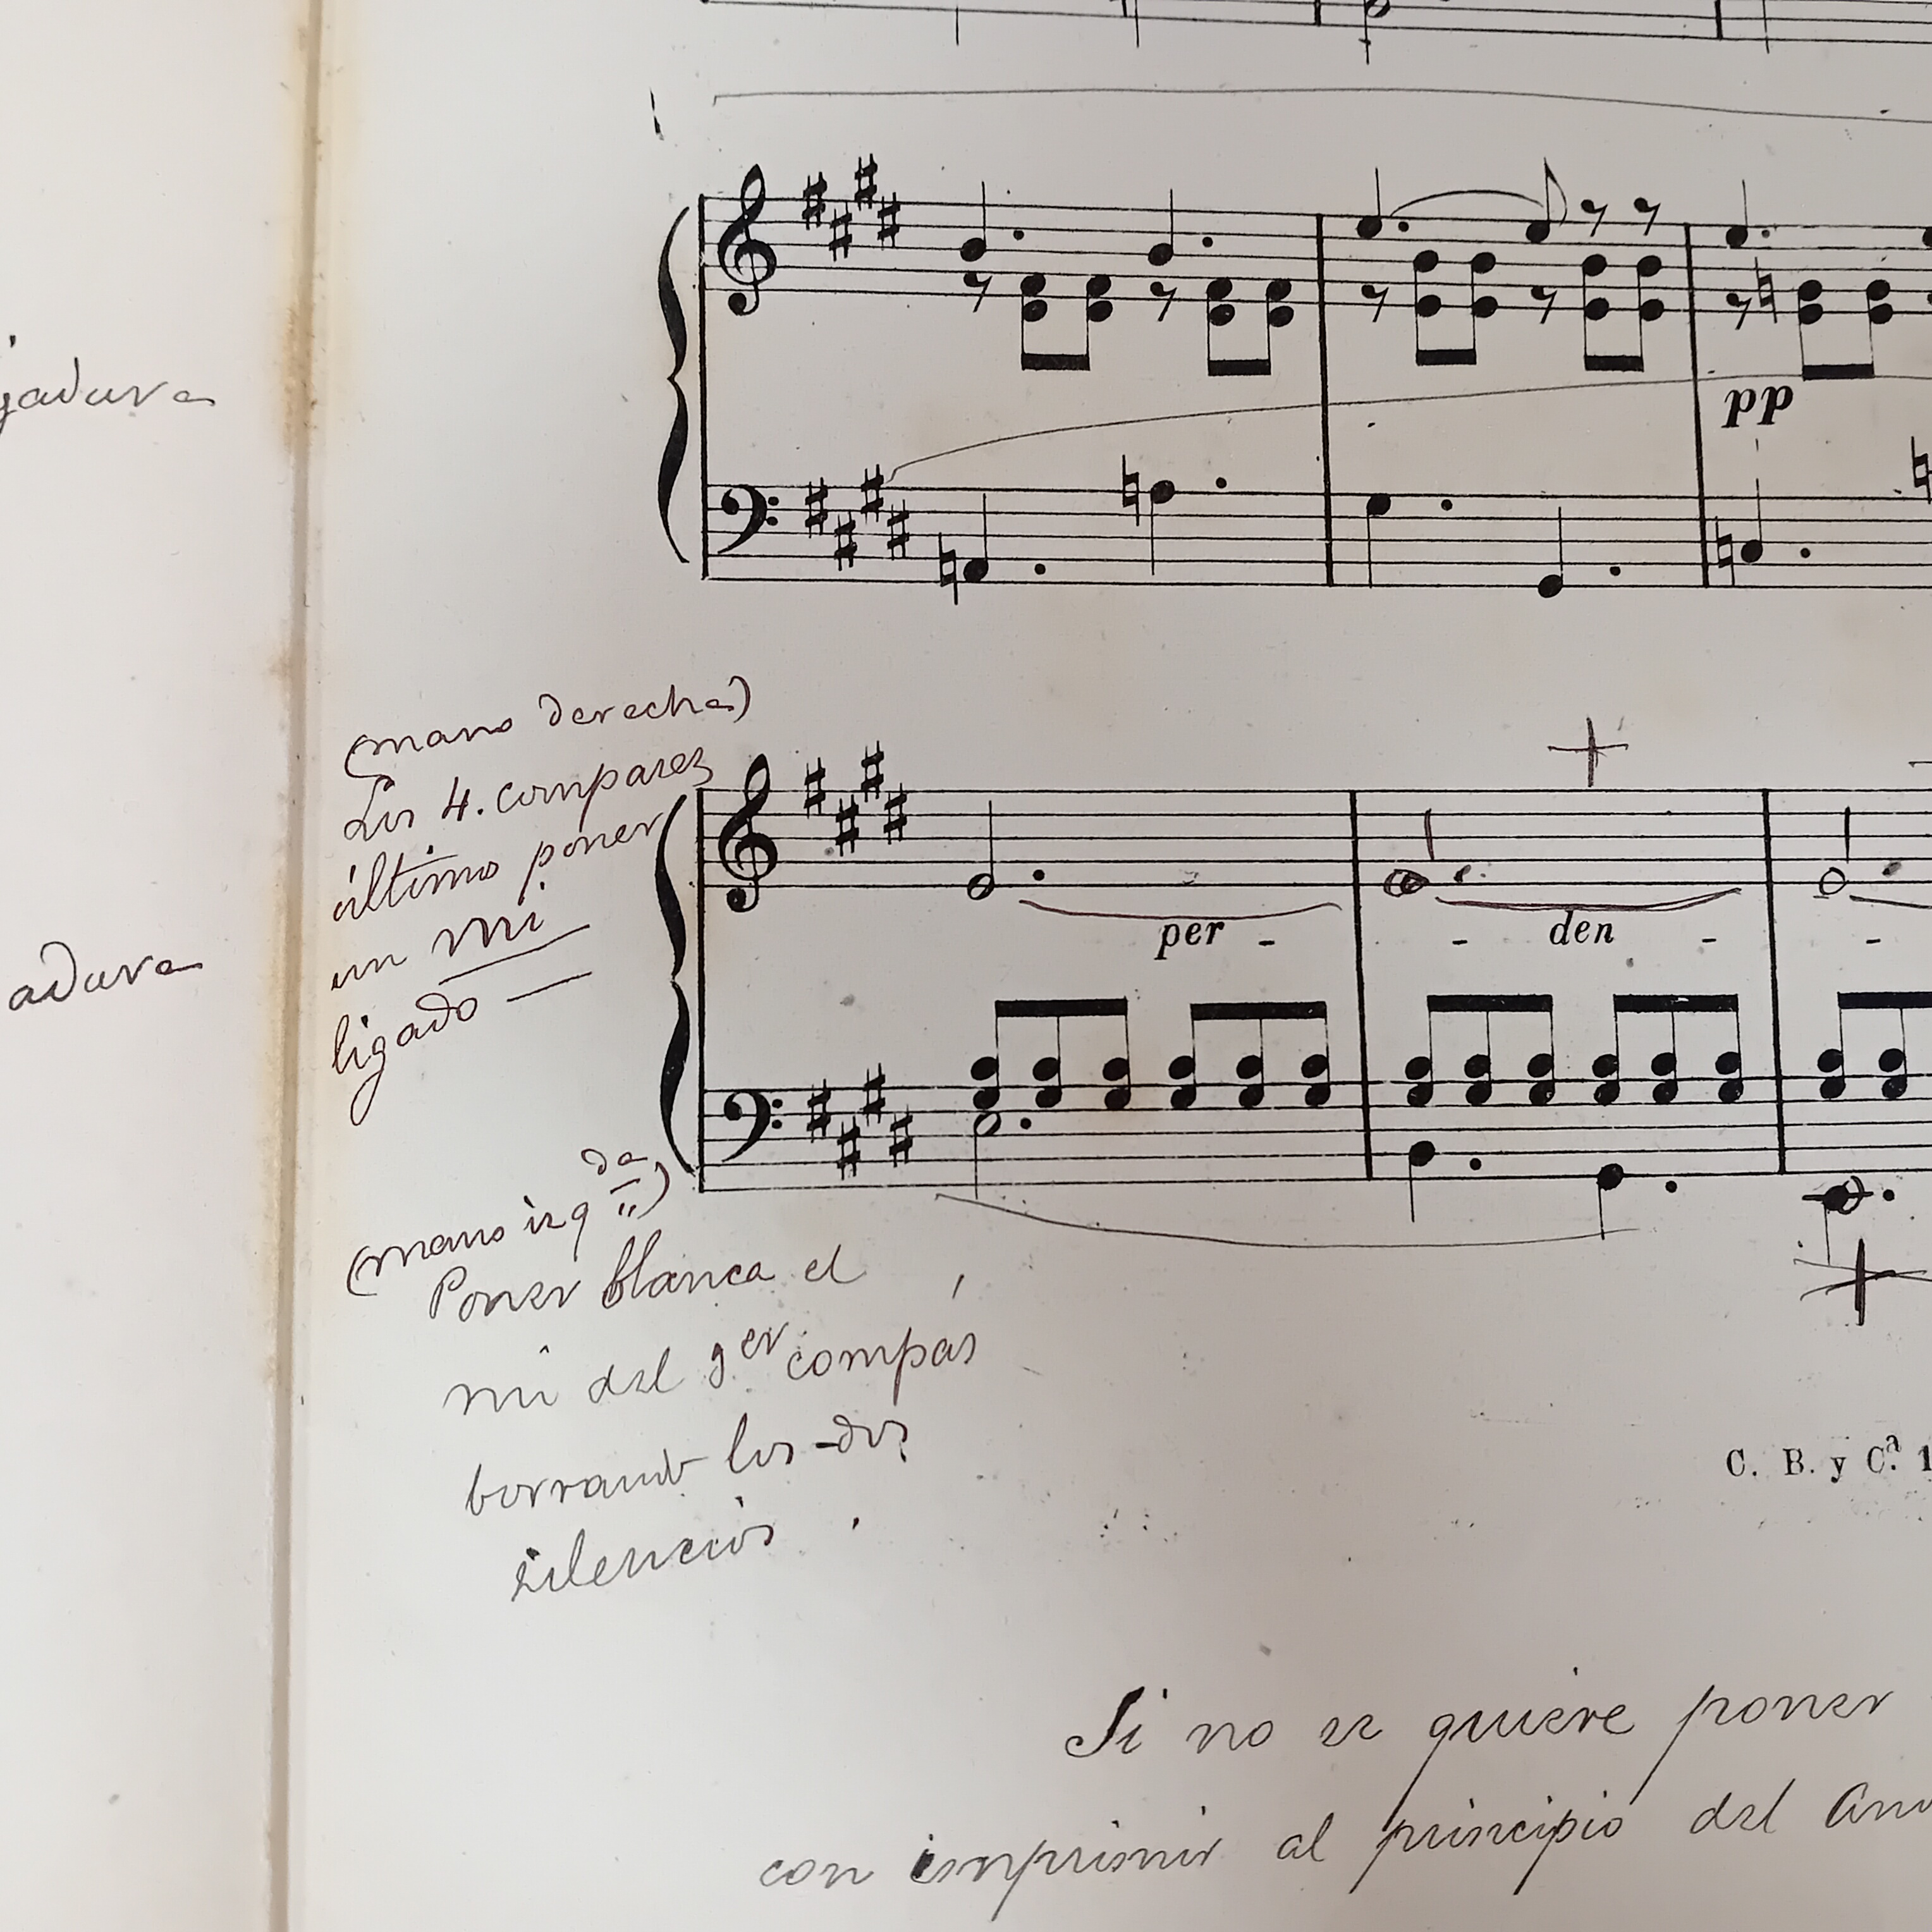 pp
(mano derecha)
Los 4. compases
último poner
un mi
ligado
per - - den - -
adura
(mano izqda)
Poner blanca el
mi del 3er compás
borrando los dos
silencios
C. B. y Cª. 1
Si no se quiere poner
con imprimir al principio del